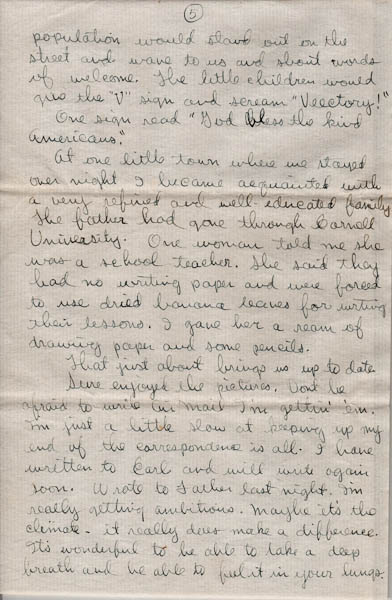 5
population would stand out on the
street and wave to us and shout words
of welcome. The little children would
give the "V" sign and scream "Veectory!"
One sign read "God bless the kind
Americans."
At one little town where we stayed
over night I became acquainted with
a very refined and well educated family
The father had gone through Cornell
University. One woman told me she
was a school teacher. She said they
had no writing paper and were forced
to use dried banana leaves for writing
their lessons. I gave her a ream of
drawing paper and some pencils.
That just about brings us up to date
Sure enjoyed the pictures. Dont be
afraid to write air mail I'm gettin' 'em.
I'm just a little slow at keeping up my
end of the correspondence is all. I have
written to Earl and will write again
soon. Wrote to Father last night. I'm
really getting ambitious. Maybe it's the
climate - it really does make a difference.
It's wonderful to be able to take a deep
breath and be able to feel it in your lungs.